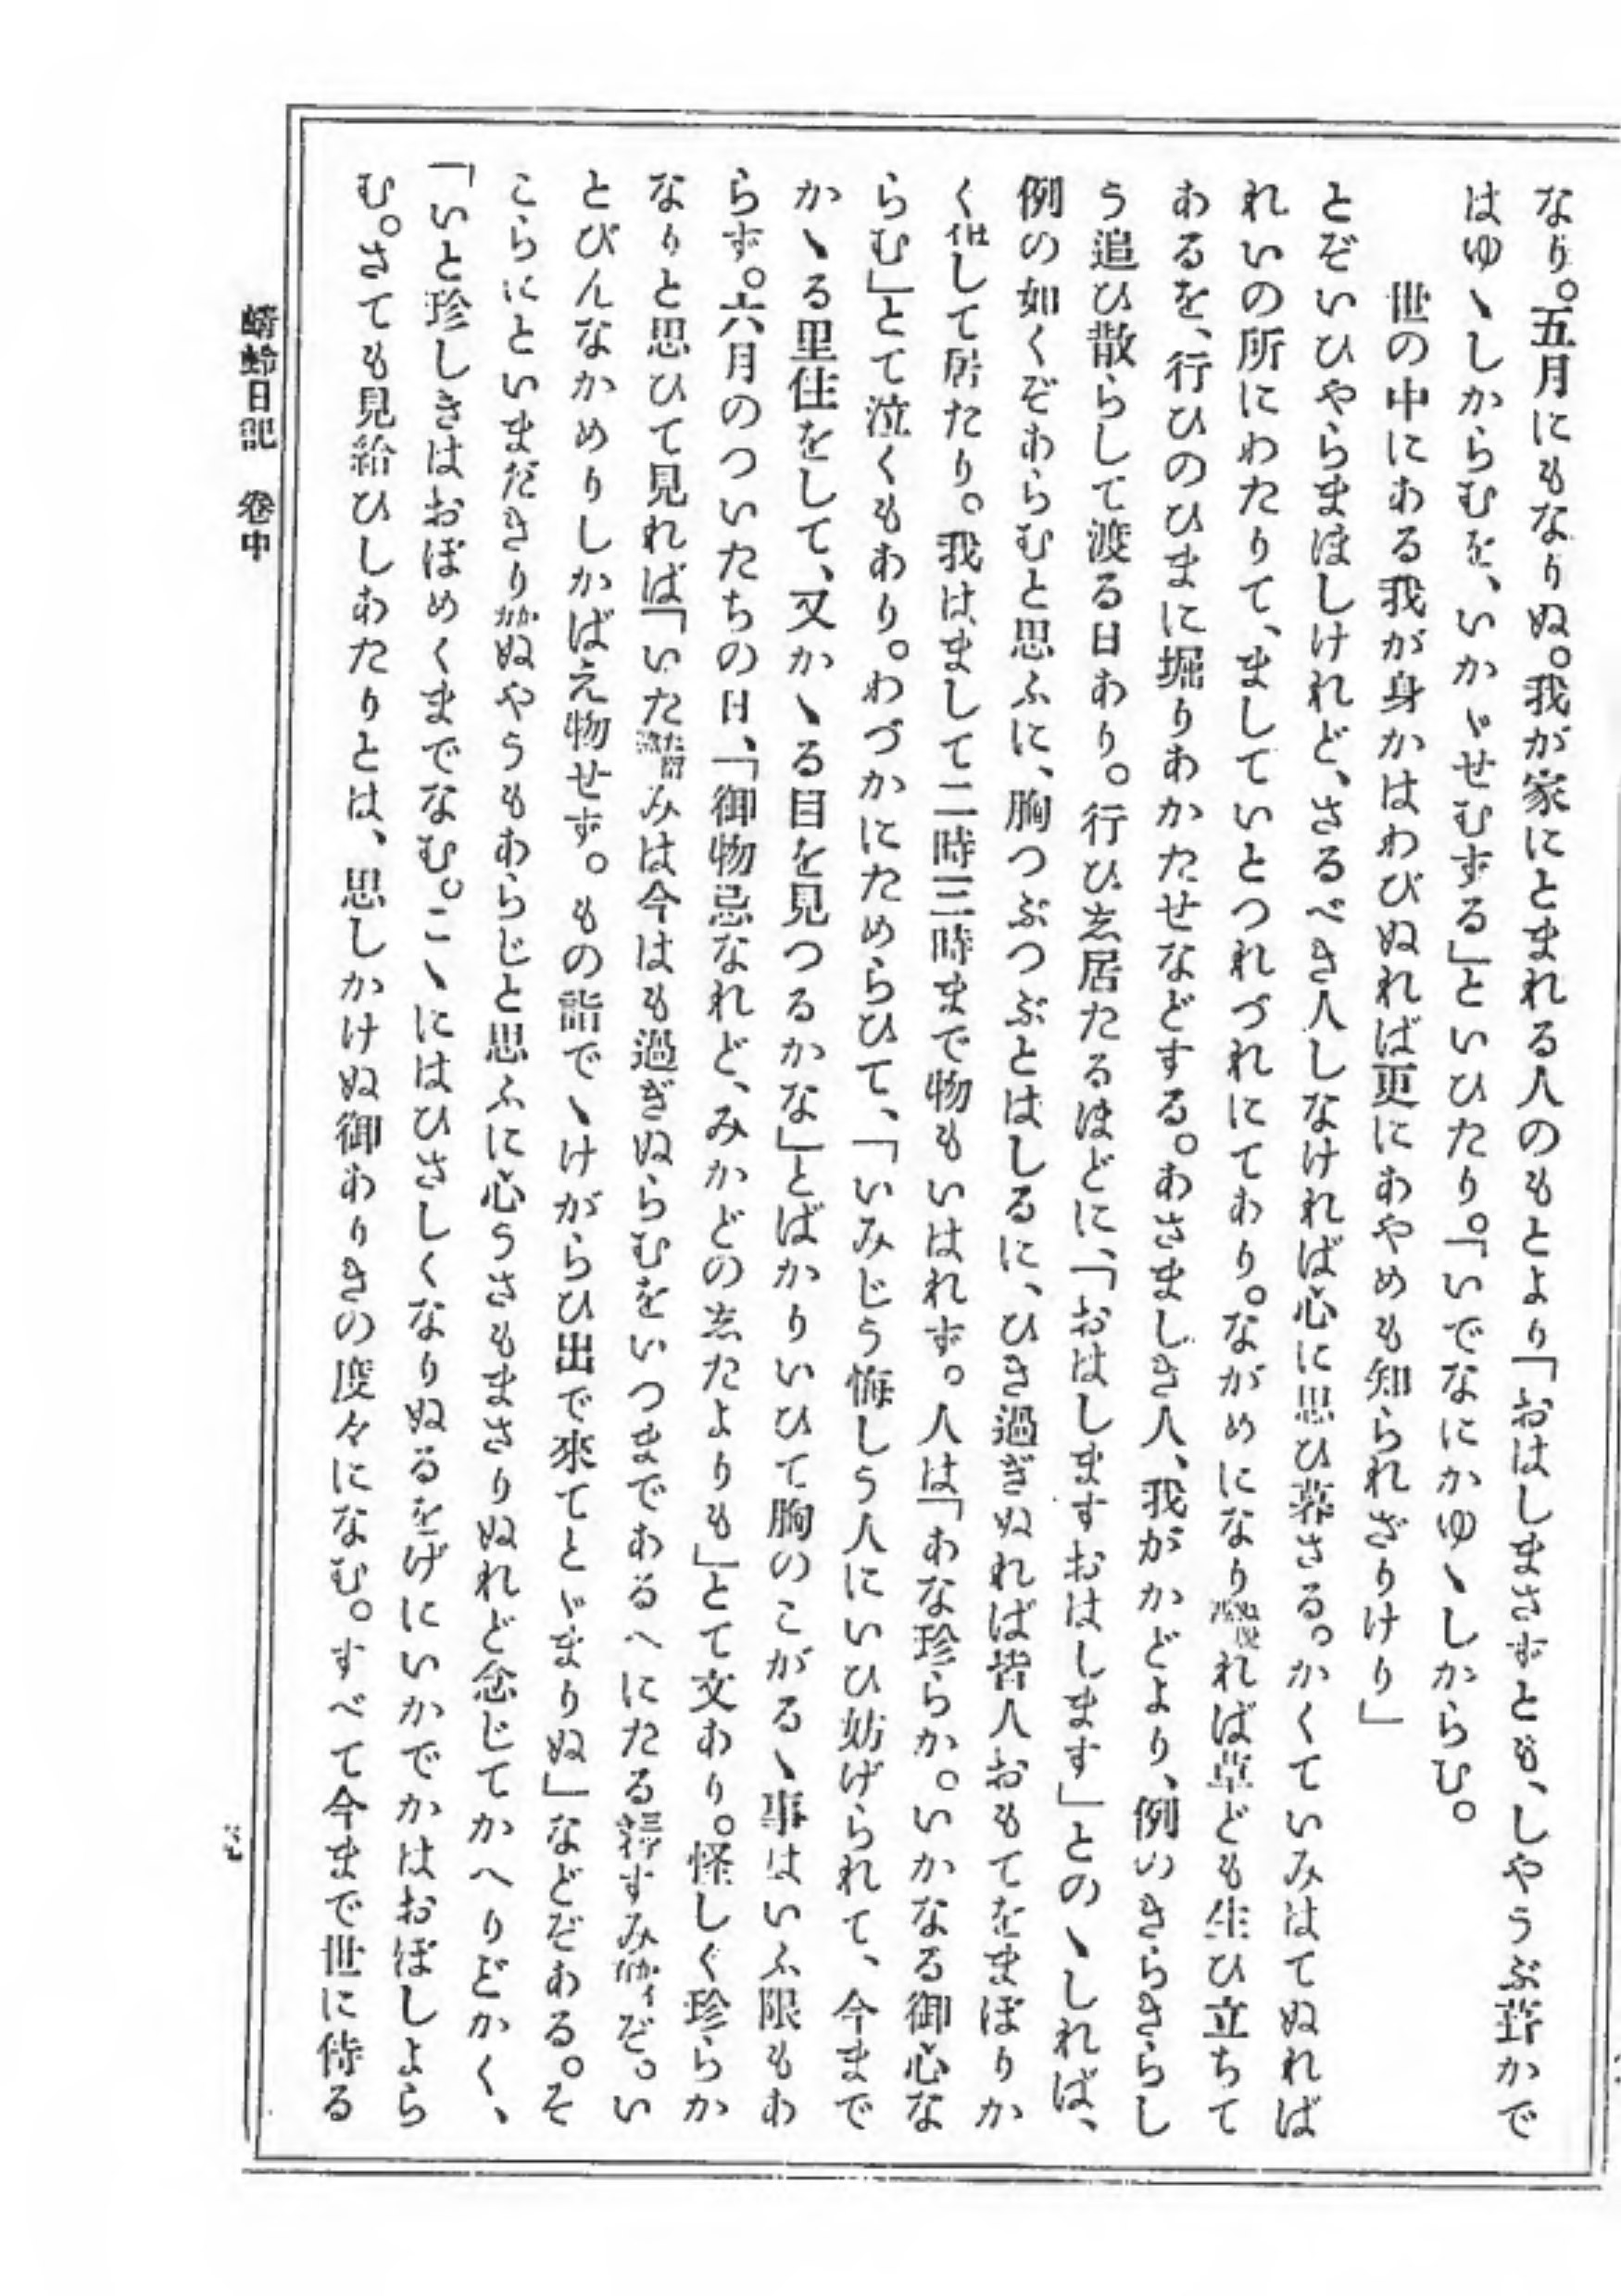 なり。五月にもなりぬ。我が家にとまれる人のもとより「おはしまさずとも、しやうぶ葺かで
はゆヽしからむを、いかヾせむずる」といひたり。「いでなにかゆヽしからむ。
世の中にある我が身かはわびぬれば更にあやめも知られざりけり」
とぞいひやらまほしけれど、さるべき人しなければ心に思ひ暮さる。かくていみはてぬれば
れいの所にわたりて、ましていとつれづれにてあり。ながめになりれば草ども生ひ立ちて
あるを、行ひのひまに堀りあかたせなどする。あさましき人、我がかどより、例のきらきらし
う追ひ散らして渡る日あり。行ひ志居たるほどに、「おはしますおはします」とのヽしれば、
例の如くぞあらむと思ふに、胸つぶつぶとはしるに、ひき過ぎぬれば皆人おもてをまぼりか
くして居たり。我はまして二時三時まで物もいはれず。人は「あな珍らか。いかなる御心な
らむ」とて泣くもあり。わづかにためらひて、「いみじう悔しう人にいひ妨げられて、今まで
かヽる里住をして、又かヽる目を見つるかな」とばかりいひて胸のこがるヽ事はいふ限もあ
らず。六月のついたちの日、「御物忌なれど、みかどの志たよりも」とて文あり。怪しく珍らか
なりと思ひて見れば「いたみは今はも過ぎぬらむをいつまであるへにたるすみぞ。い
とびんなかめりしかばえ物せず。もの詣でヽけがらひ出で來てとヾまりぬ」などぞある。そ
こらにといまだきりぬやうもあらじと思ふに心うさもまさりぬれど念じてかへりどかく、
「いと珍しきはおぼめくまでなむ。こヽにはひさしくなりぬるをげにいかでかはおぼしよら
む。さても見給ひしわたりとは、思しかけぬ御ありきの度々になむ。すべて今まで世に侍る
蜻蛉日記　卷中